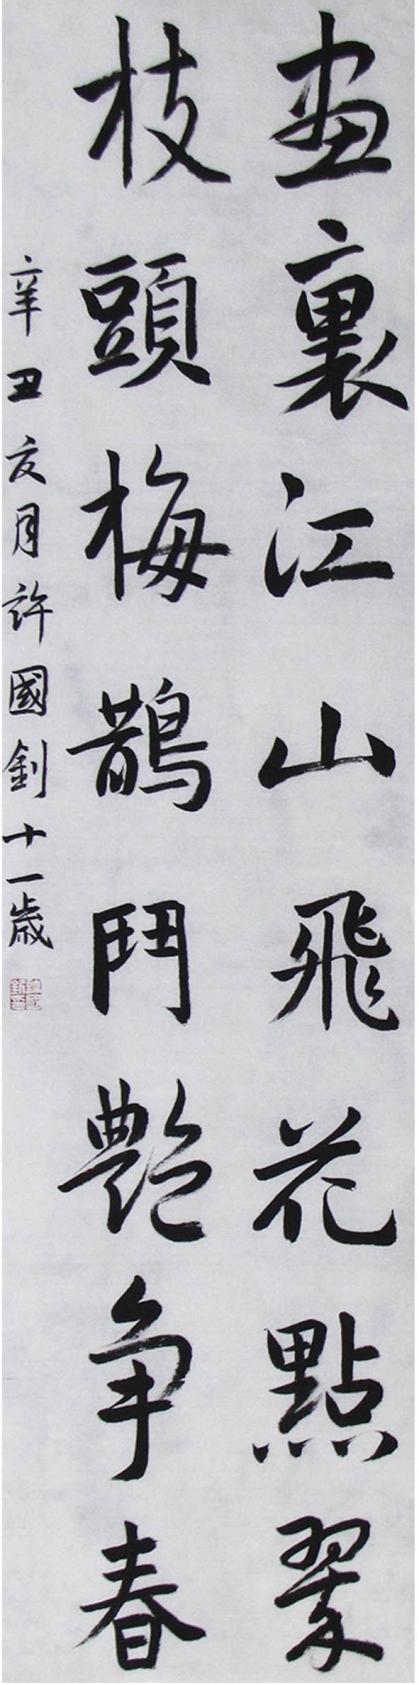 画裏江山飛花點翠
枝頭梅鵲鬥艷争春
辛丑亥月許國釗十一歲